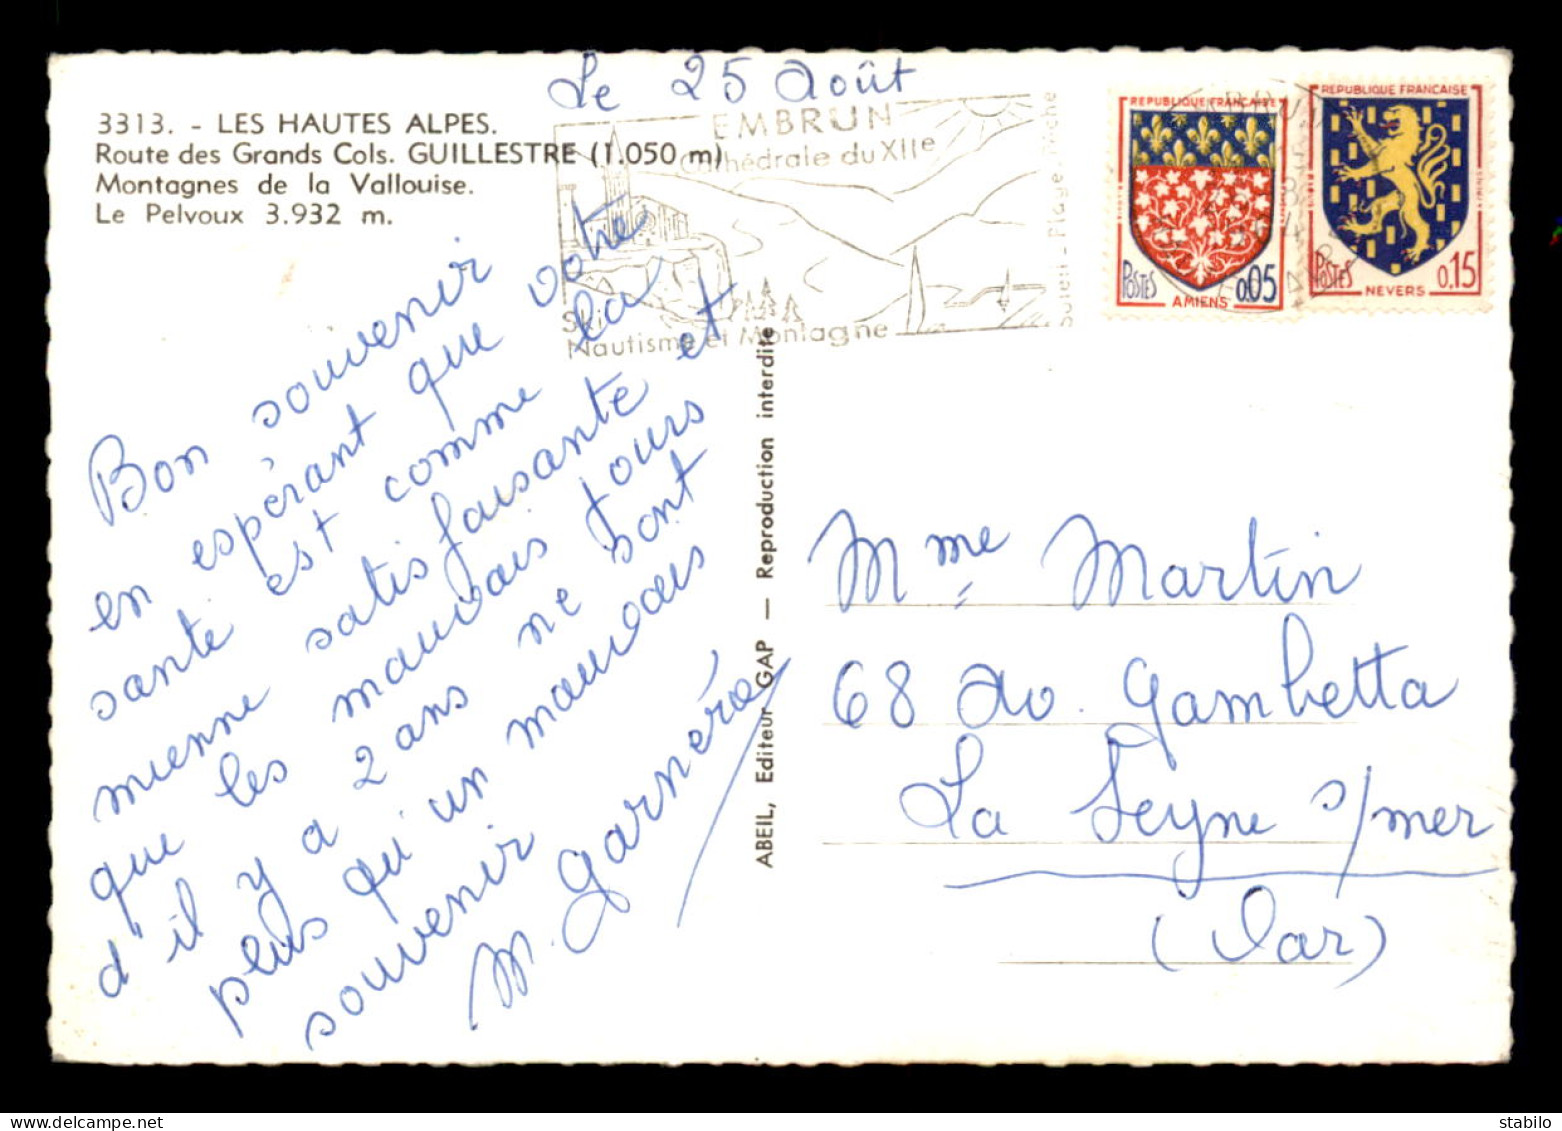 Le 25 Août
3313. - LES HAUTES ALPES.
Route des Grands Cols. GUILLESTRE (1.050 m)
Montagnes de la Vallouise.
Le Pelvoux 3.932 m.
EMBRUN
Cathédrale du XIIe
Ski
Nautisme et Montagne
Soleil - Plage - Pêche
REPUBLIQUE FRANÇAISE
POSTES 0,05
AMIENS
REPUBLIQUE FRANÇAISE
POSTES 0,15
NEVERS
Bon souvenir
en espérant que votre
santé est comme la
mienne satisfaisante et
que les mauvais jours
d'il y a 2 ans ne sont
plus qu'un mauvais
souvenir
M. Garnéra
ABEIL, Editeur GAP — Reproduction interdite
Mme Martin
68 Av. Gambetta
La Seyne s/mer
(Var)
www.delcampe.net
stabilo